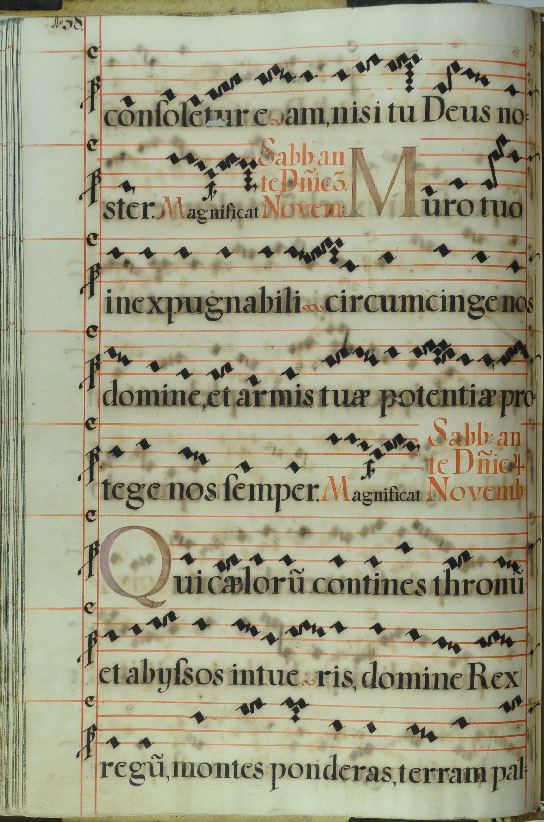 138
consoletur eam, nisi tu Deus no-
ster. Magnificat Sabb: an
te Dñie 3
Novem: Muro tuo
inexpugnabili circumcinge nos
domine, et armis tuæ potentiæ pro
tege nos semper. Magnificat Sabb: an
te Dñie 4
Novemb
Qui cælorũ contines thronũ
et abyssos intueris, domine Rex
regũ, montes ponderas, terram pal-